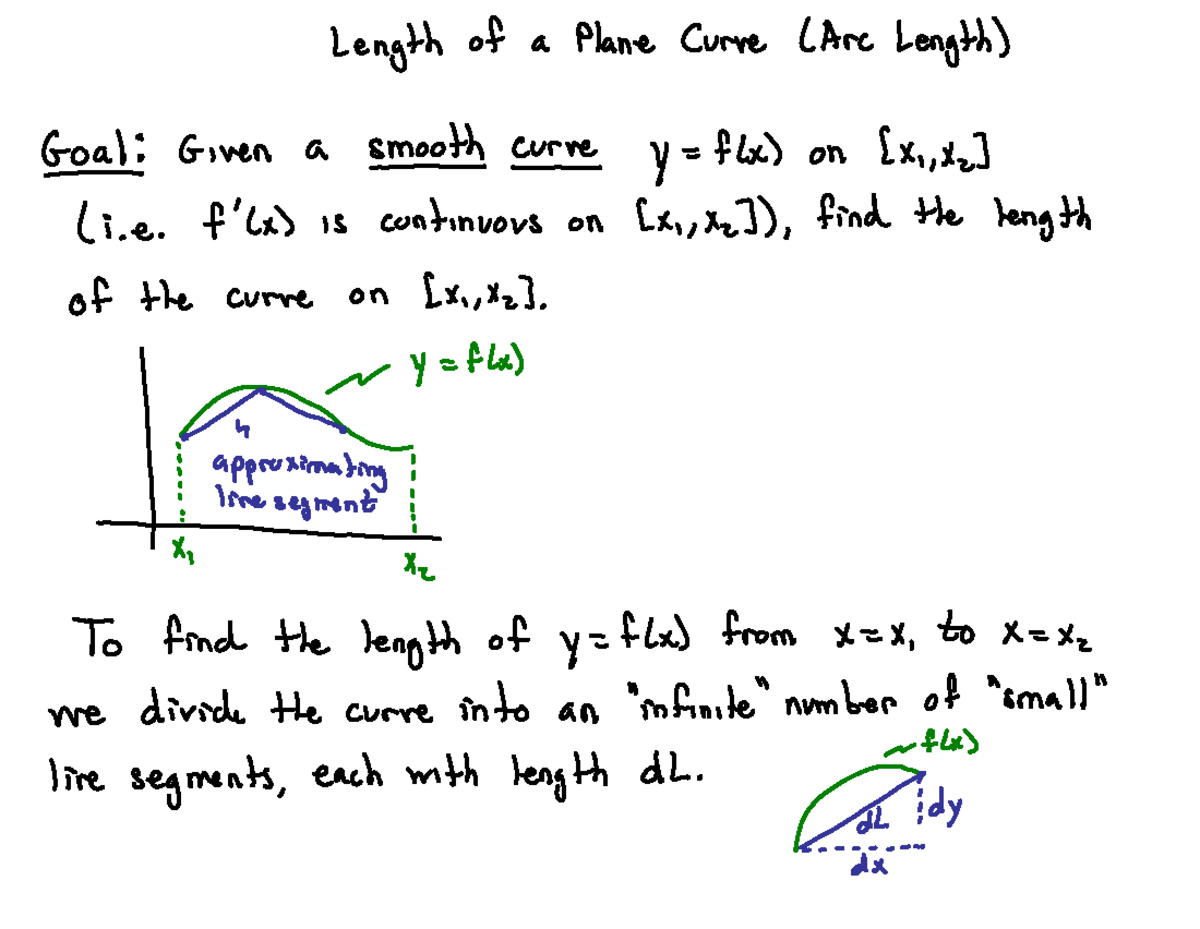 Length of a Plane Curve (Arc Length)
Goal: Given a smooth curve y = f(x) on [x₁, x₂]
(i.e. f'(x) is continuous on [x₁, x₂]), find the length
of the curve on [x₁, x₂].
y = f(x)
approximating
line segment
x₁
x₂
To find the length of y = f(x) from x = x₁ to x = x₂
we divide the curve into an "infinite" number of "small"
f(x)
line segments, each with length dL.
dL
dy
dx